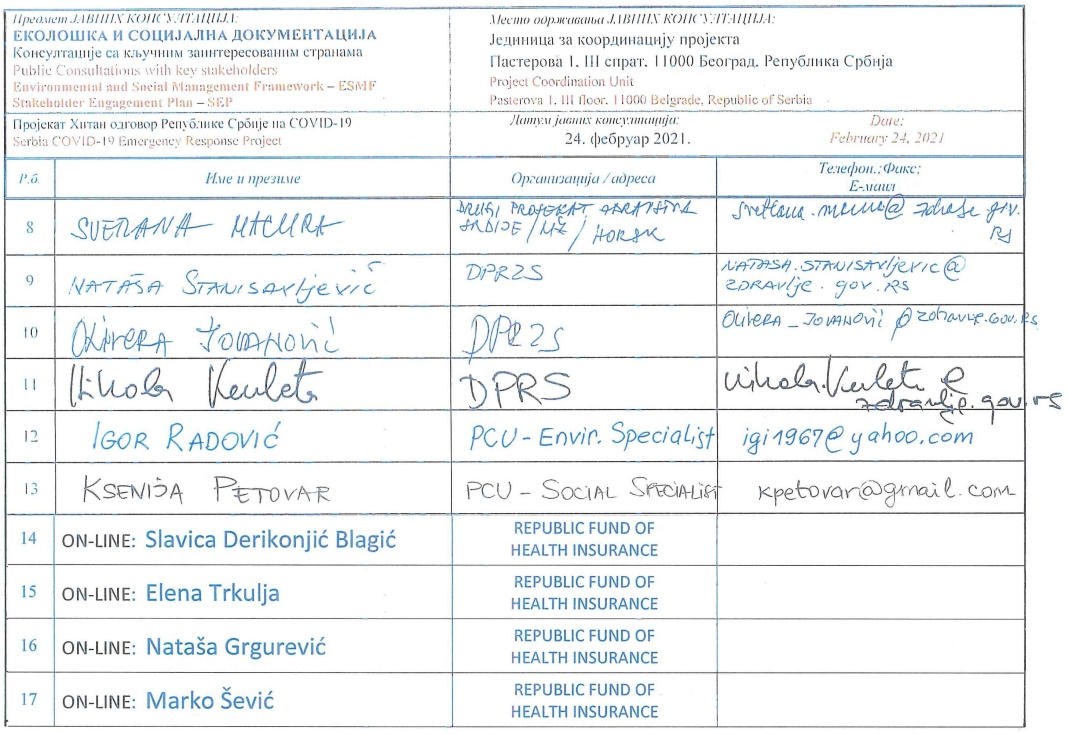 Предмет ЈАВНИХ КОНСУЛТАЦИЈА:
ЕКОЛОШКА И СОЦИЈАЛНА ДОКУМЕНТАЦИЈА
Консултације са кључним заинтересованим странама
Public Consultations with key stakeholders
Environmental and Social Management Framework – ESMF
Stakeholder Engagement Plan – SEP
Место одржавања ЈАВНИХ КОНСУЛТАЦИЈА:
Јединица за координацију пројекта
Пастерова 1, III спрат, 11000 Београд, Република Србија
Project Coordination Unit
Pasterova 1, III floor, 11000 Belgrade, Republic of Serbia
Пројекат Хитан одговор Републике Србије на COVID-19
Serbia COVID-19 Emergency Response Project
Датум јавних консултација:
24. фебруар 2021.
Date:
February 24, 2021
Р.б.
Име и презиме
Организација / адреса
Телефон.;Факс;
Е-маил
8
MACURA
DRUGI PROJEKAT
SRBIJE / MZ /
RS
9
NATAŠA STANISAVLjević
DPRZS
NATASA.STANISAVLjevic@
ZDRAVLje.gov.RS
10
OLIVERA JOVANOVIĆ
DPRZS
OLIVERA_JOVANOVIĆ @zdravlje.GOV.RS
11
Nikola Kerleta
DPRS
nikola.kerleta @
zdravlje.gov.rs
12
IGOR RADOVIĆ
PCU - Envir. Specialist
igi1967@yahoo.com
13
KSENIJA PETOVAR
PCU - SOCIAL SPECIALIST
kpetovar@gmail.com
14
ON-LINE: Slavica Derikonjić Blagić
REPUBLIC FUND OF
HEALTH INSURANCE
15
ON-LINE: Elena Trkulja
REPUBLIC FUND OF
HEALTH INSURANCE
16
ON-LINE: Nataša Grgurević
REPUBLIC FUND OF
HEALTH INSURANCE
17
ON-LINE: Marko Šević
REPUBLIC FUND OF
HEALTH INSURANCE